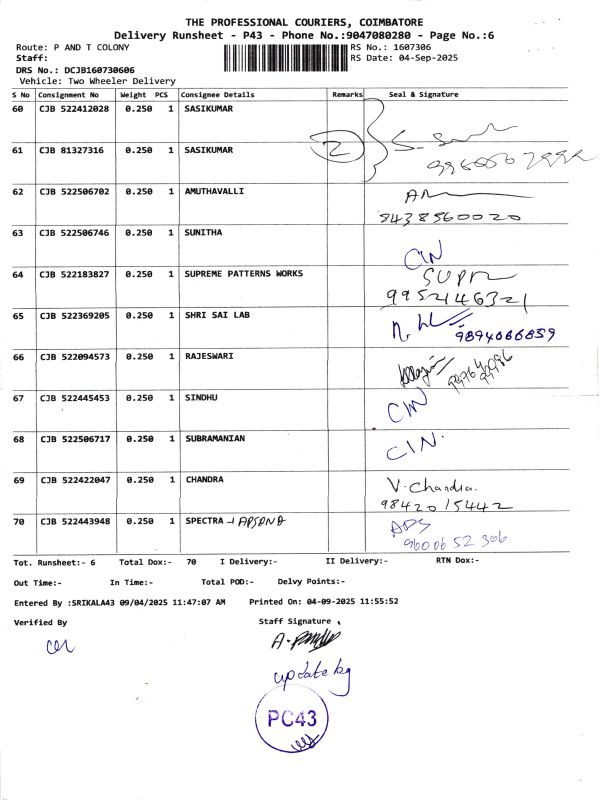 THE PROFESSIONAL COURIERS, COIMBATORE
Delivery Runsheet - P43 - Phone No.:9047080280 - Page No.:6
Route: P AND T COLONY RS No.: 1607306
Staff: RS Date: 04-Sep-2025
DRS No.: DCJB160730606
Vehicle: Two Wheeler Delivery
S No Consignment No Weight PCS Consignee Details Remarks Seal & Signature
60 CJB 522412028 0.250 1 SASIKUMAR
61 CJB 81327316 0.250 1 SASIKUMAR 2
62 CJB 522506702 0.250 1 AMUTHAVALLI
9438560020
63 CJB 522506746 0.250 1 SUNITHA
CIN
64 CJB 522183827 0.250 1 SUPREME PATTERNS WORKS
9952146321
65 CJB 522369205 0.250 1 SHRI SAI LAB
9894066859
66 CJB 522094573 0.250 1 RAJESWARI
67 CJB 522445453 0.250 1 SINDHU
CIN
68 CJB 522506717 0.250 1 SUBRAMANIAN
CIN.
69 CJB 522422047 0.250 1 CHANDRA V. Chandra.
9842015442
70 CJB 522443948 0.250 1 SPECTRA
9600652306
Tot. Runsheet:- 6 Total Dox:- 70 I Delivery:- II Delivery:- RTN Dox:-
Out Time:- In Time:- Total POD:- Delvy Points:-
Entered By :SRIKALA43 09/04/2025 11:47:07 AM Printed On: 04-09-2025 11:55:52
Verified By Staff Signature
update kg
PC43